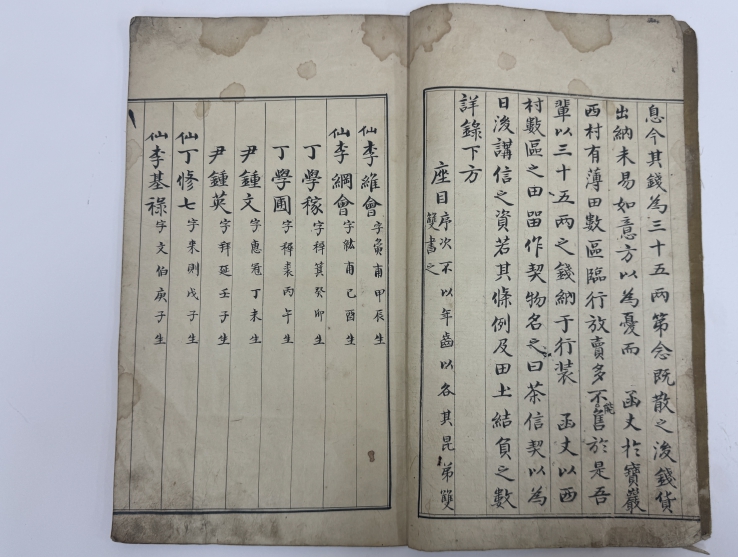 息今其錢為三十五兩第念既散之後錢貨
出納未易如意方以為憂而 函丈於寶巖
西村有薄田數區臨行放賣多不能售於是吾
輩以三十五兩之錢納于行裝 函丈以西
村數區之田留作契物名之曰茶信契以為
日後講信之資若其條例及田土結負之數
詳錄下方
座目 序次不以年齒以各其昆弟雙
雙書之
仙 李維會 字 甫甲辰生
仙 李綱會 字紘甫己酉生
丁學稼 字稺箕癸卯生
丁學圃 字稺裘丙午生
尹鍾文 字惠冠丁未生
尹鍾英 字拜延壬子生
仙 丁修七 字来則戊子生
仙 李基祿 字文伯庚子生